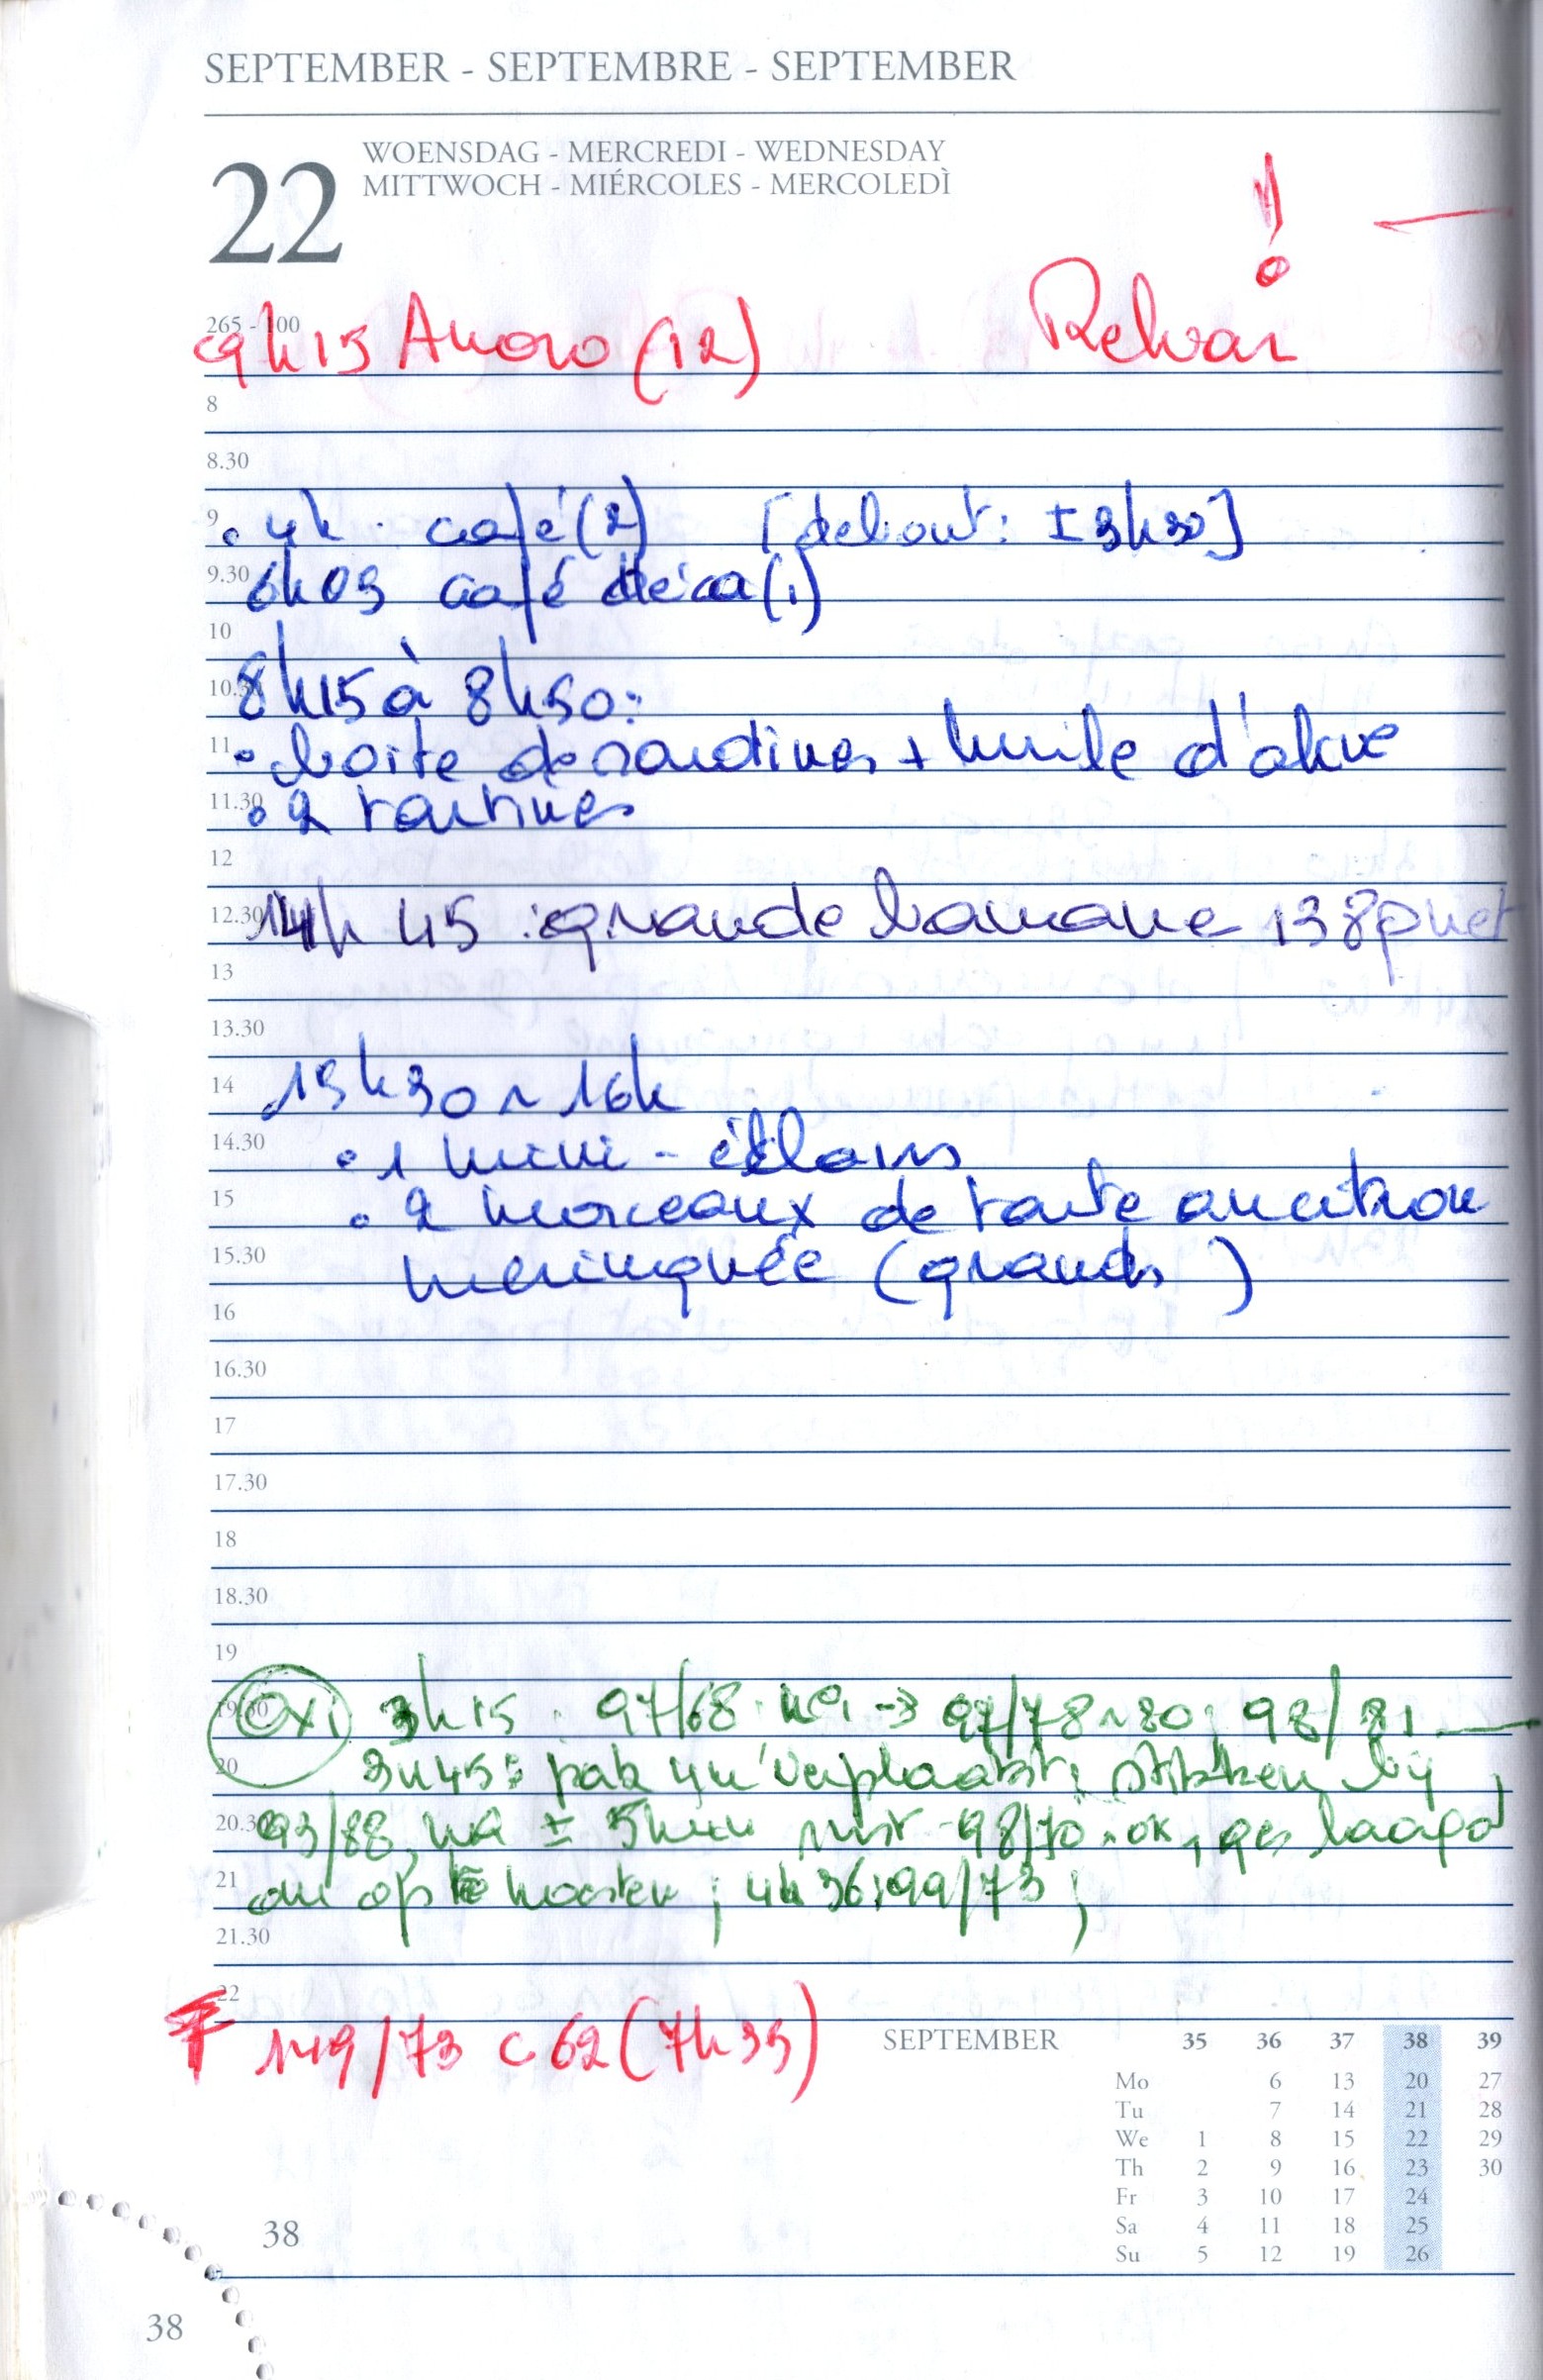 SEPTEMBER - SEPTEMBRE - SEPTEMBER
22
WOENSDAG - MERCREDI - WEDNESDAY
MITTWOCH - MIÉRCOLES - MERCOLEDÌ
!
265 - 100
9h15 (12)
8
8.30
9
• 4h café (2) [debout: ± 3h30]
9.30
6h05 café déca (1)
10
10.30
8h15 à 8h50:
11
• boite de sardines + huile d'olive
11.30
• 2 tartines
12
12.30
14h45 : grande banane 138g net
13
13.30
15h30 ~ 16h
14
14.30
• 1 mini - éclairs
15
• 2 morceaux de tarte au citron
15.30
meringuée (grands)
16
16.30
17
17.30
18
18.30
19
19.30
Oxi 3h15 : 97/68 → 97/78~80; 98/81
20
3h45: verplaatst; bij
20.30
93/88, na ± 5min rust 98/70 ok,
21
op te hoesten; 4h36: 99/73;
21.30
22
149/73 c 62 (7h35)
SEPTEMBER 35 36 37 38 39
Mo 6 13 20 27
Tu 7 14 21 28
We 1 8 15 22 29
Th 2 9 16 23 30
Fr 3 10 17 24
Sa 4 11 18 25
Su 5 12 19 26
38
38